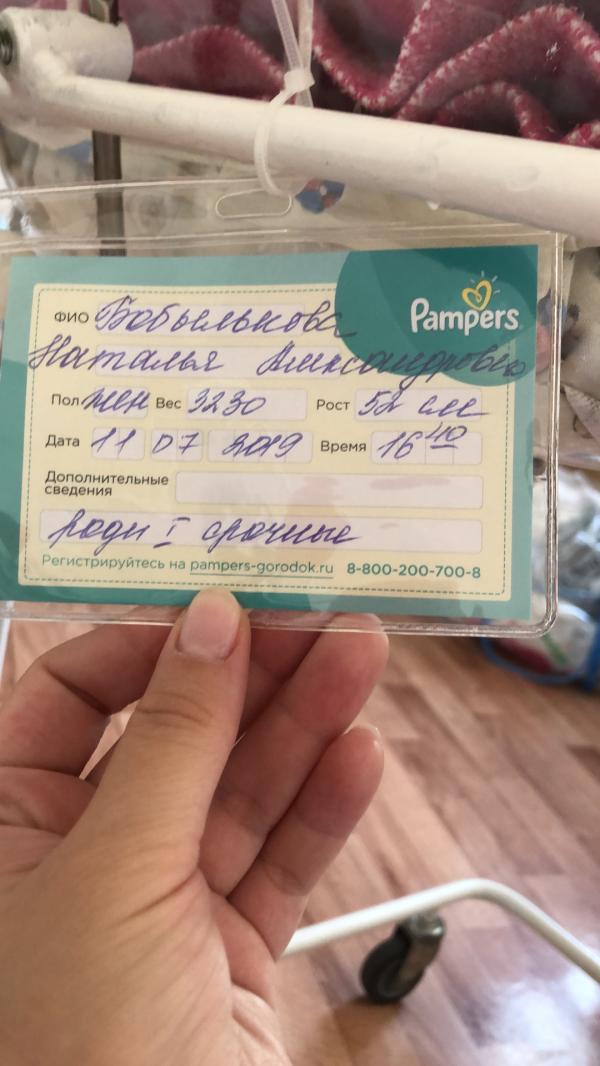 Pampers
ФИО Бобылькова
Наталья Александровна
Пол жен Вес 3230 Рост 52 см
Дата 11 07 2019 Время 16 40
Дополнительные
сведения
роды I срочные
Регистрируйтесь на pampers-gorodok.ru 8-800-200-700-8